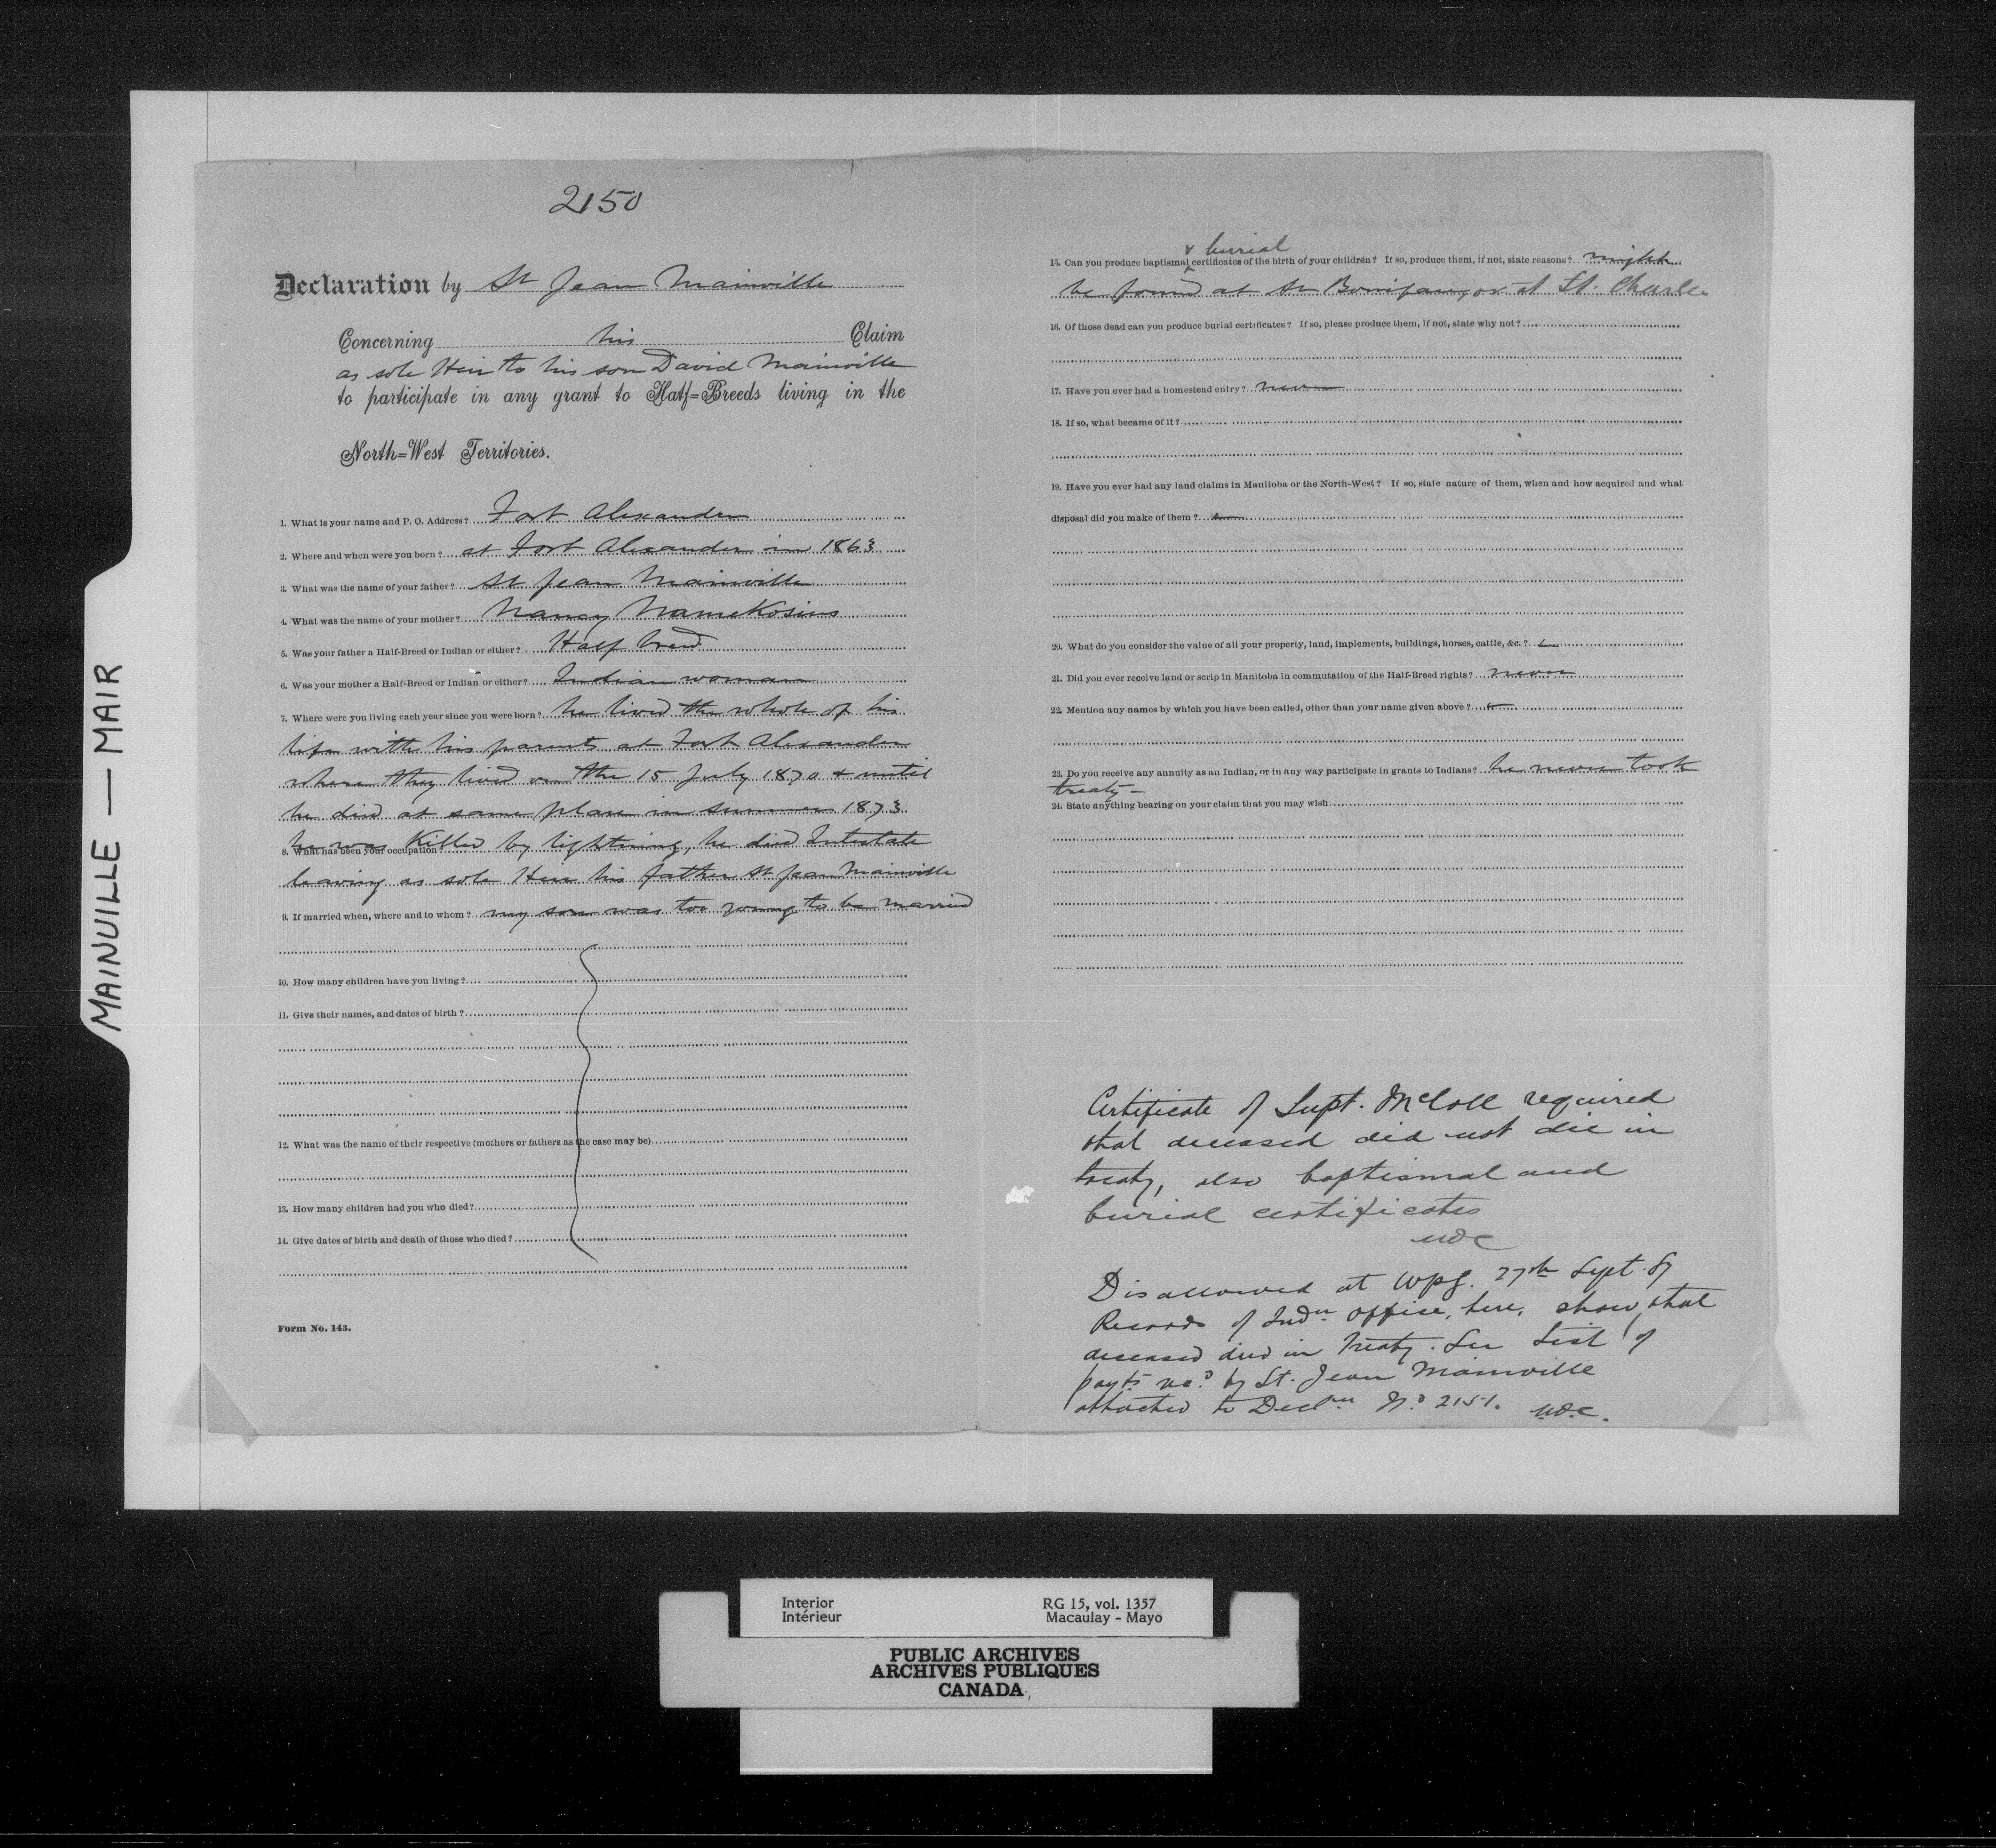 MAINVILLE — MAIR
2150
Declaration by St Jean Mainville
Concerning his Claim
as sole Heir to his son David Mainville
to participate in any grant to Half=Breeds living in the
North=West Territories.
1. What is your name and P. O. Address? Fort Alexander
2. Where and when were you born? at Fort Alexander in 1863
3. What was the name of your father? St Jean Mainville
4. What was the name of your mother? Nancy NameKosins
5. Was your father a Half-Breed or Indian or either? Half breed
6. Was your mother a Half-Breed or Indian or either? Indian woman
7. Where were you living each year since you were born? he lived the whole of his
life with his parents at Fort Alexander
where they lived on the 15 July 1870 & until
he died at same place in summer 1873
he was Killed by lightning, he died Intestate
8. What has been your occupation?
leaving as sole Heir his father St Jean Mainville
9. If married when, where and to whom? my son was too young to be married
10. How many children have you living?
11. Give their names, and dates of birth?
12. What was the name of their respective (mothers or fathers as the case may be)
13. How many children had you who died?
14. Give dates of birth and death of those who died?
Form No. 143.
& burial
15. Can you produce baptismal certificates of the birth of your children? If so, produce them, if not, state reasons? might
be found at St Boniface, or at St. Charles
16. Of those dead can you produce burial certificates? If so, please produce them, if not, state why not?
17. Have you ever had a homestead entry? never
18. If so, what became of it?
19. Have you ever had any land claims in Manitoba or the North-West? If so, state nature of them, when and how acquired and what
disposal did you make of them?
20. What do you consider the value of all your property, land, implements, buildings, horses, cattle, &c.?
21. Did you ever receive land or scrip in Manitoba in commutation of the Half-Breed rights? never
22. Mention any names by which you have been called, other than your name given above?
23. Do you receive any annuity as an Indian, or in any way participate in grants to Indians? he never took
treaty -
24. State anything bearing on your claim that you may wish
Certificate of Supt. McColl required
that deceased did not die in
treaty, also baptismal and
burial certificates
Disallowed at Wpg. 27th Sept. 87
Records of Indn Office, here, show that
deceased died in Treaty. See List of
payts rec.d by St. Jean Mainville
attached to Decln No 2151.
Interior
Intérieur
RG 15, vol. 1357
Macaulay - Mayo
PUBLIC ARCHIVES
ARCHIVES PUBLIQUES
CANADA